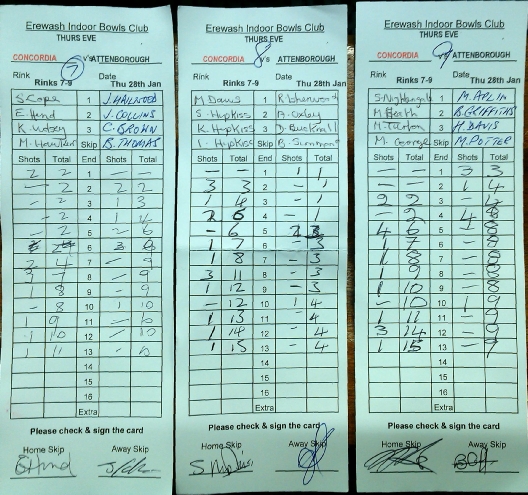 Erewash Indoor Bowls Club
THURS EVE
CONCORDIA V's ATTENBOROUGH
7
Rink Date
Rinks 7-9 Thu 28th Jan
S Cope 1 J. HAILWOOD
E. Hind 2 J. COLLINS
3 C. BROWN
Skip B. THOMAS
Shots Total End Shots Total
2 2 1 — —
— 2 2 2 2
- 2 3 1 3
- 2 4 1 4
- 2 5 2 6
6 3 9
2 4 7 - 9
3 7 8 - 9
1 8 9 - 9
- 8 10 1 10
1 9 11 - 10
1 10 12 - 10
1 11 13 - 10
14
15
16
Extra
Please check & sign the card
Home Skip Away Skip
Erewash Indoor Bowls Club
THURS EVE
CONCORDIA V's ATTENBOROUGH
8
Rink Date
Rinks 7-9 Thu 28th Jan
M Davis 1 R Sherwood
S. Hopkiss 2
K. Hopkiss 3 D. Bucknall
I. Hopkiss Skip B. Simmons
Shots Total End Shots Total
— — 1 1 1
3 3 2 - 1
1 4 3 - 1
2 6 4 - 1
- 6 5 2 3
1 7 6 - 3
1 8 7 - 3
3 11 8 - 3
1 12 9 - 3
- 12 10 1 4
1 13 11 - 4
1 14 12 - 4
1 15 13 - 4
14
15
16
Extra
Please check & sign the card
Home Skip Away Skip
Erewash Indoor Bowls Club
THURS EVE
CONCORDIA V's ATTENBOROUGH
9
Rink Date
Rinks 7-9 Thu 28th Jan
S. Nightingale 1 M. APLIN
2 B. GRIFFITHS
3 H. DAVIS
M. George Skip M. POTTER
Shots Total End Shots Total
— — 1 3 3
— — 2 1 4
2 2 3 - 4
- 2 4 4 8
4 6 5 - 8
1 7 6 - 8
1 8 7 - 8
1 9 8 - 8
1 10 9 - 8
- 10 10 1 9
1 11 11 - 9
3 14 12 - 9
1 15 13 - 9
14
15
16
Extra
Please check & sign the card
Home Skip Away Skip